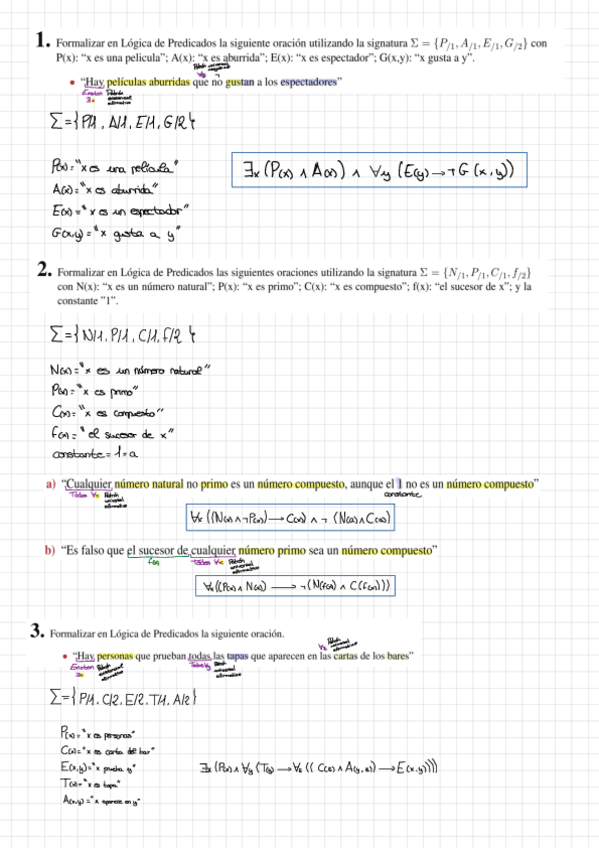 1. Formalizar en Lógica de Predicados la siguiente oración utilizando la signatura Σ = {P/1, A/1, E/1, G/2} con
P(x): “x es una pelicula”; A(x): “x es aburrida”; E(x): “x es espectador”; G(x,y): “x gusta a y”.
∀y ¬
• “Hay películas aburridas que no gustan a los espectadores”
Existen Patrón existencial afirmativo
∃x
Σ={P/1, A/1, E/1, G/2}
P(x)="x es una película"
A(x)="x es aburrida"
E(x)="x es un espectador"
G(x,y)="x gusta a y"
∃x (P(x) ∧ A(x)) ∧ ∀y (E(y) → ¬G(x,y))
2. Formalizar en Lógica de Predicados las siguientes oraciones utilizando la signatura Σ = {N/1, P/1, C/1, f/2}
con N(x): “x es un número natural”; P(x): “x es primo”; C(x): “x es compuesto”; f(x): “el sucesor de x”; y la
constante "1".
Σ={N/1, P/1, C/1, f/2}
N(x)="x es un número natural"
P(x)="x es primo"
C(x)="x es compuesto"
f(x)="el sucesor de x"
constante=1=a
a) “Cualquier número natural no primo es un número compuesto, aunque el 1 no es un número compuesto”
Todos ∀x Patrón universal afirmativo constante
∀x ((N(x) ∧ ¬P(x)) → C(x)) ∧ ¬ (N(a) ∧ C(a))
b) “Es falso que el sucesor de cualquier número primo sea un número compuesto”
f(x) Todos ∀x Patrón universal afirmativo
∀x((P(x) ∧ N(x)) → ¬(N(f(x)) ∧ C(f(x))))
3. Formalizar en Lógica de Predicados la siguiente oración.
∀z Patrón universal afirmativo
• “Hay personas que prueban todas las tapas que aparecen en las cartas de los bares”
Existen Patrón existencial afirmativo Todas ∀y Patrón universal afirmativo
∃x
Σ={P/1, C/2, E/2, T/1, A/2}
P(x)="x es personas"
C(x)="x es carta del bar"
E(x,y)="x prueba y"
T(x)="x es tapa"
A(x,y)="x aparece en y"
∃x (P(x) ∧ ∀y (T(y) → ∀z (( C(z) ∧ A(y,z)) → E(x,y))))